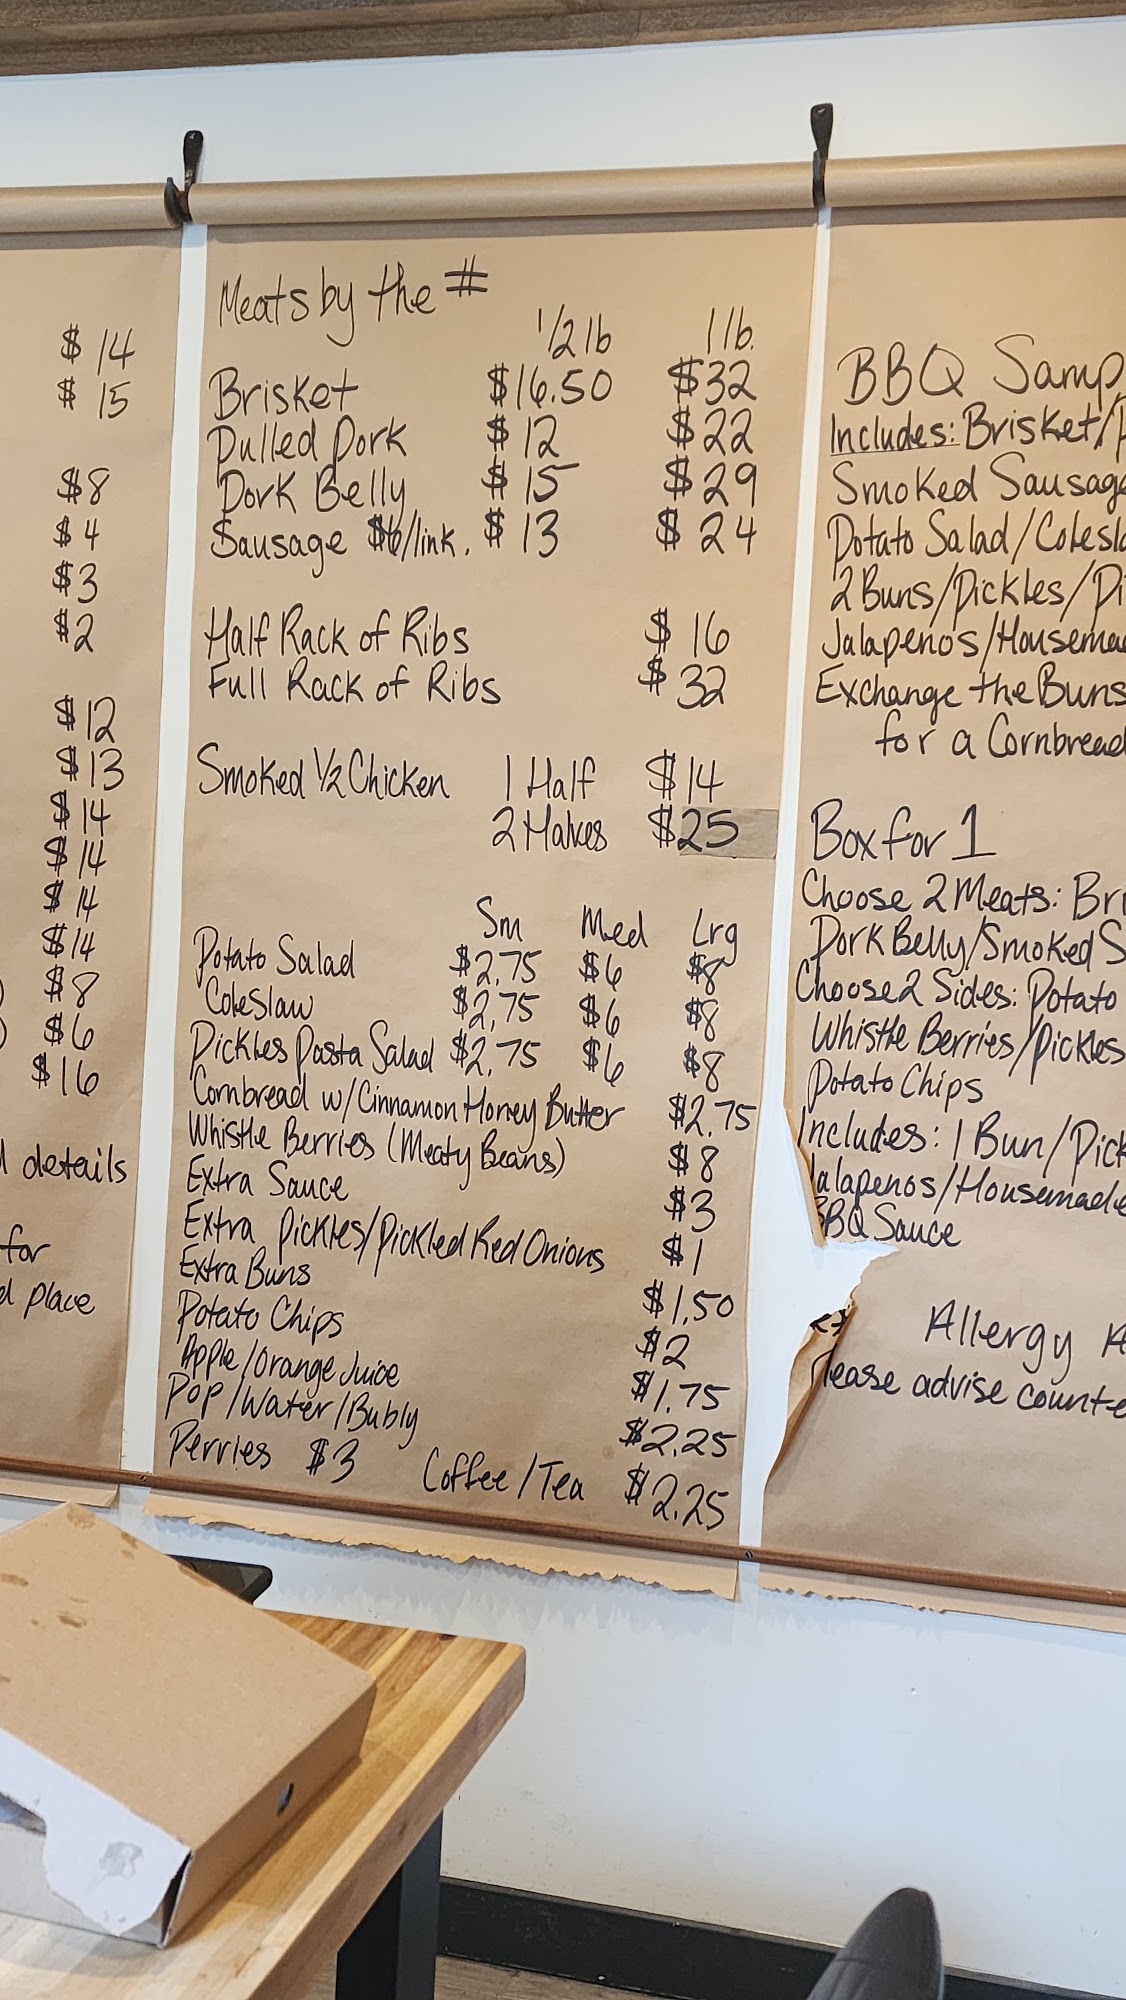 $ 14
$ 15
$8
$4
$3
$2
$12
$13
$14
$14
$14
$14
$8
$6
$16
details
for
place
Meats by the #
1/2 lb 1 lb.
Brisket $16.50 $32
Pulled Pork $12 $22
Pork Belly $15 $29
Sausage $6/link. $13 $24
Half Rack of Ribs $16
Full Rack of Ribs $32
Smoked 1/2 Chicken 1 Half $14
2 Halves $25
Sm Med Lrg
Potato Salad $2.75 $6 $8
Coleslaw $2.75 $6 $8
Pickles Pasta Salad $2.75 $6 $8
Cornbread w/Cinnamon Honey Butter $2.75
Whistle Berries (Meaty Beans) $8
Extra Sauce $3
Extra Pickles/Pickled Red Onions $1
Extra Buns $1.50
Potato Chips $2
Apple/Orange Juice $1.75
Pop/Water/Bubly $2.25
Perries $3 Coffee/Tea $2.25
BBQ Samp
Includes: Brisket/
Smoked Sausage
Potato Salad/Colesla
2 Buns/Pickles/Pi
Jalapenos/Housema
Exchange the Buns
for a Cornbread
Box for 1
Choose 2 Meats: Bri
Pork Belly/Smoked S
Choose 2 Sides: Potato
Whistle Berries/Pickles
Potato Chips
Includes: 1 Bun/Pick
Jalapenos/Housemade
BBQ Sauce
Allergy A
lease advise counte